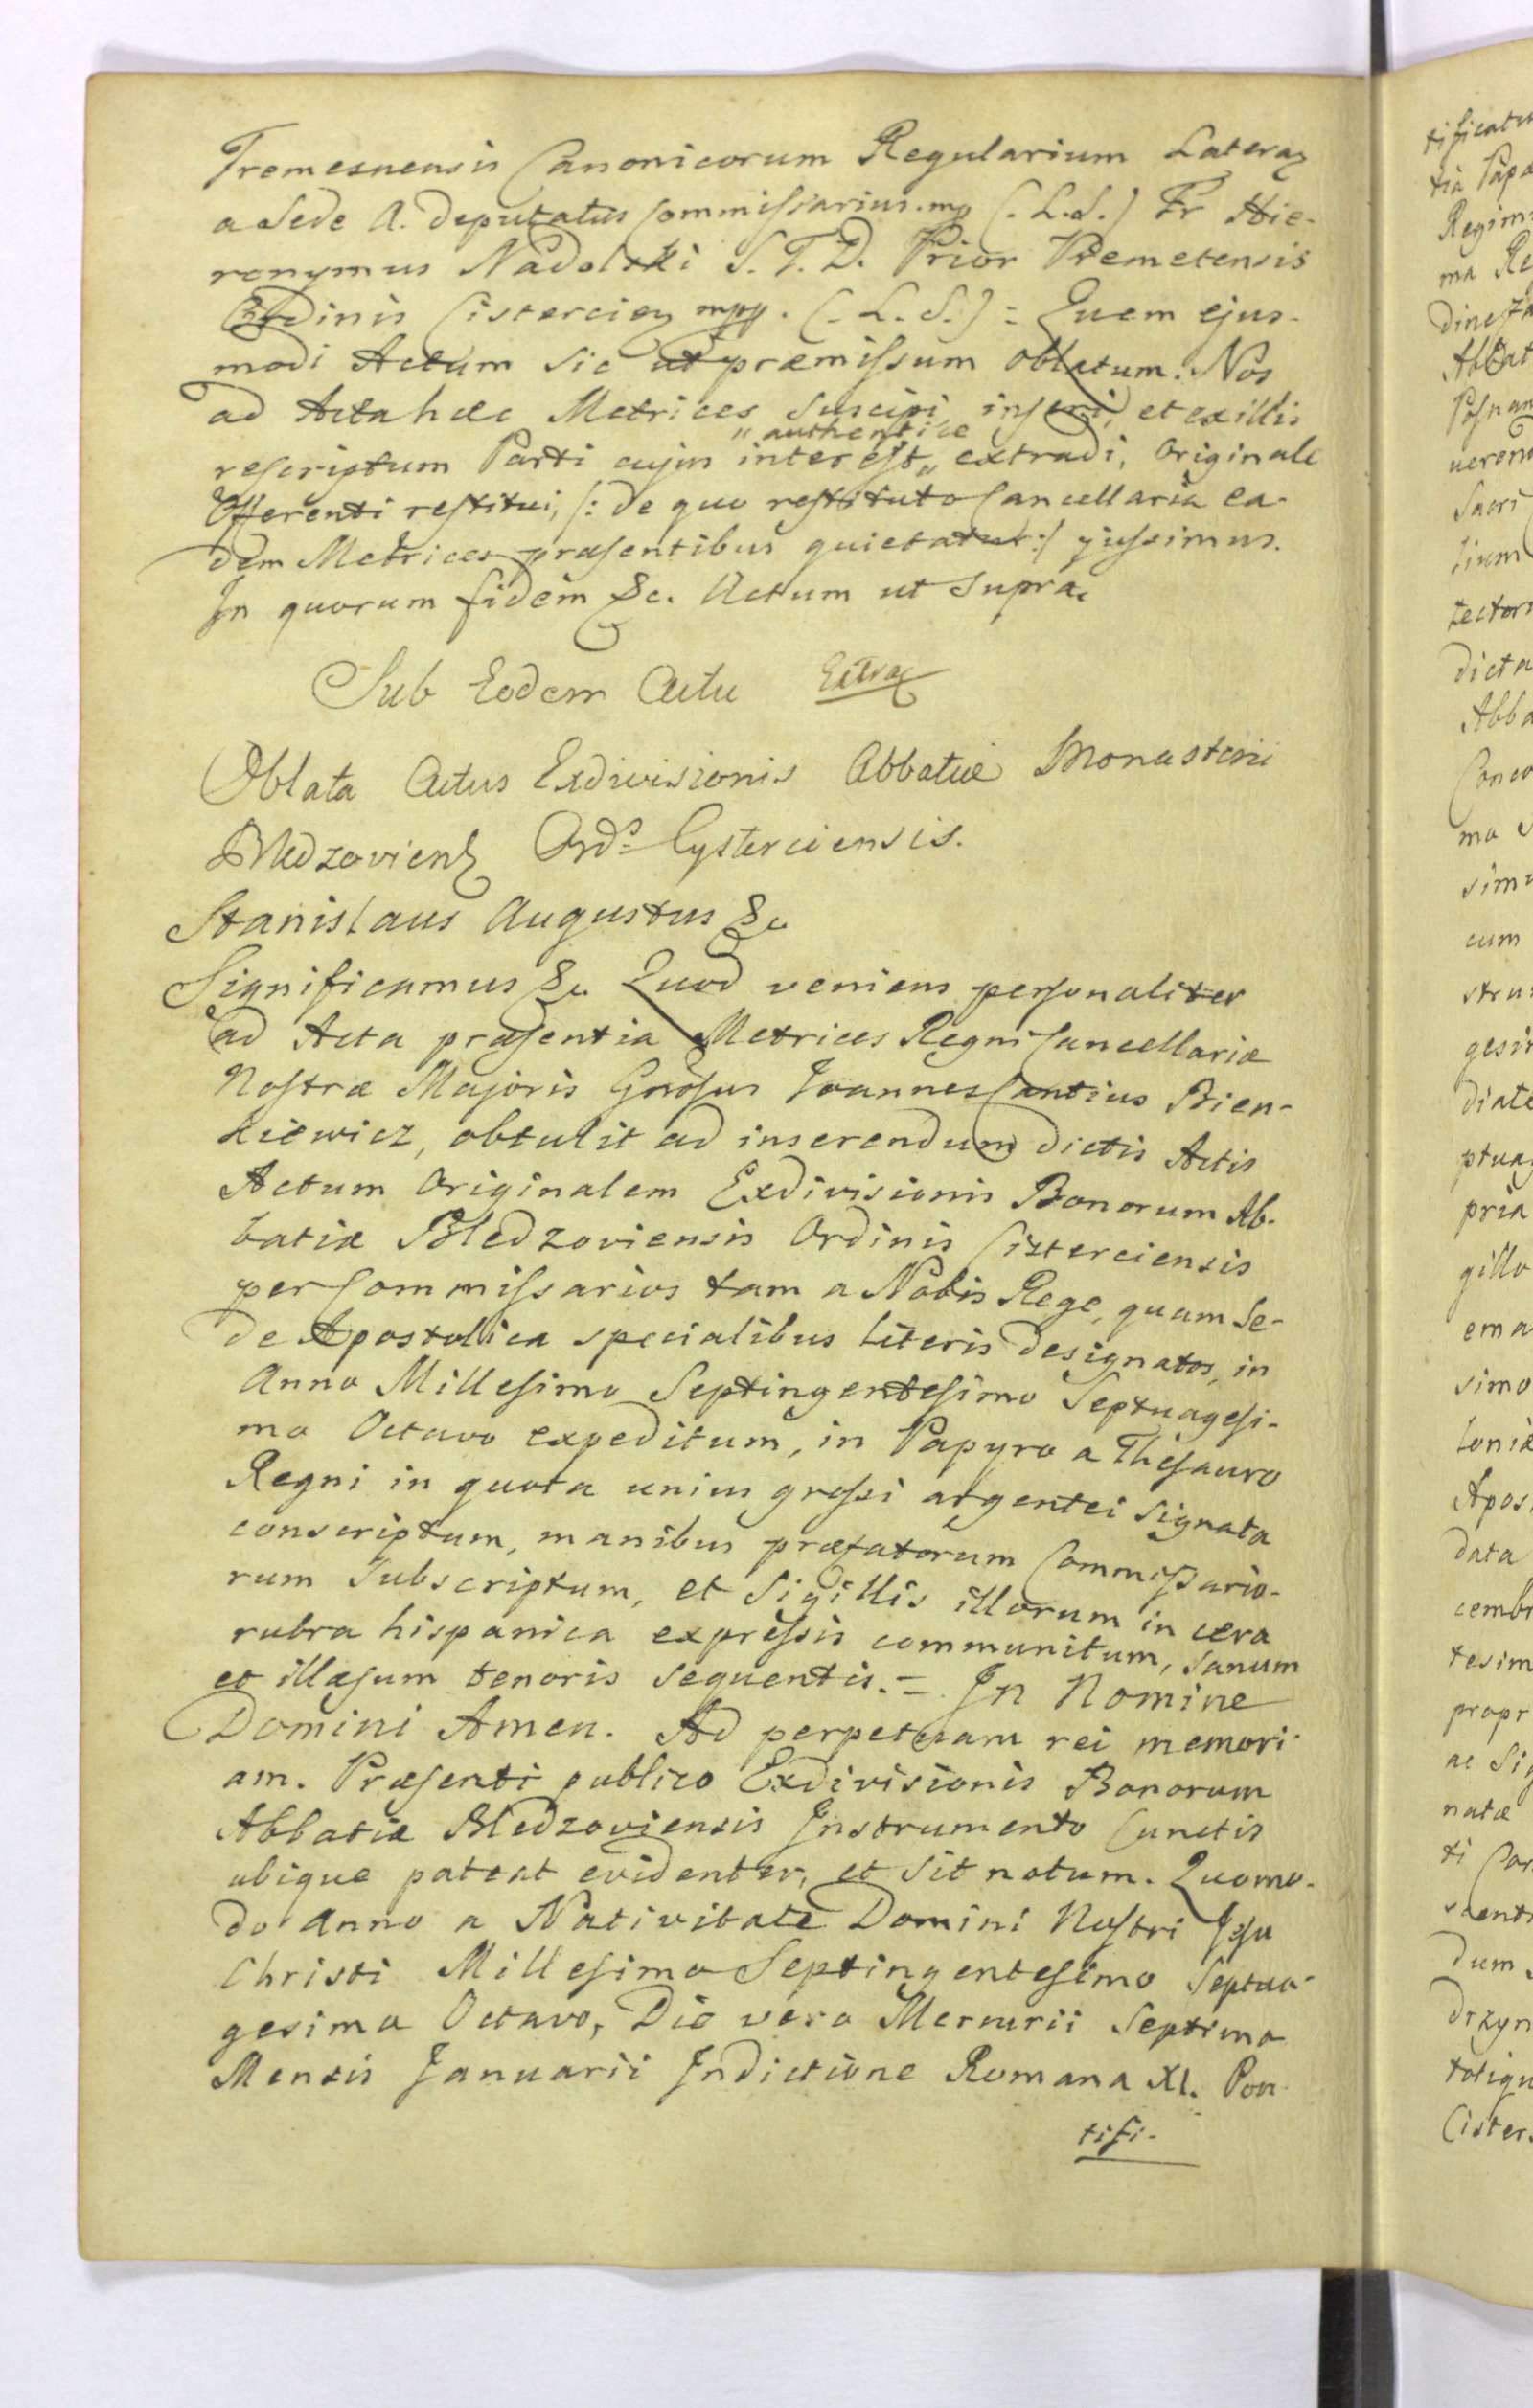 Tremesnensis Canonicorum Regularium Lateraz
a Sede A. deputatus Commissarius. mp (. L.S.) Fr Hie-
ronymus Nadolski S. T. D. Prior Premetensis
Ordinis Cistercien mpp. (. L. S.) = Quem ejus-
modi Actum sic ut præmissum oblatum. Nos
ad Acta hæc Metrices suscipi inseri, et ex illis
rescriptum Parti cujus interest „ authentice „ extradi, Originale
Offerenti restitui, /: de quo restituto Cancellaria ea-
dem Metrices præsentibus quietatur :/ jussimus.
In quorum fidem &c. Actum ut supra.
Sub Eodem Actu Extrax
Oblata Actus Exdivisionis Abbatiæ Monasterii
Bledzoviens Ords Cysterciensis.
Stanislaus Augustus &c
Significamus &c. Quod veniens personaliter
ad Acta præsentia Metrices Regni Cancellariæ
Nostræ Majoris Gnrosus Joannes Cantius Bien-
kiewicz, obtulit ad inserendum dictis Actis
Actum Originalem Exdivisionis Bonorum Ab-
batiæ Bledzoviensis Ordinis Cisterciensis
per Commissarios tam a Nobis Rege, quam Se-
de Apostolica specialibus literis designatos, in
Anno Millesimo Septingentesimo Septuagesi-
mo Octavo expeditum, in Papyro a Thesauro
Regni in quota unius grossi argentei signata
conscriptum, manibus præfatorum Commissario-
rum subscriptum, et Sigillis illorum in cera
rubra hispanica expressis communitum, sanum
et illæsum tenoris sequentis. = In Nomine
Domini Amen. Ad perpetuam rei memori-
am. Præsenti publico Exdivisionis Bonorum
Abbatiæ Bledzoviensis Instrumento Cunctis
ubique pateat evidenter, et sit notum. Quomo-
do Anno a Nativitate Domini Nostri Jesu
Christi Millesimo Septingentesimo Septua-
gesimo Octavo, Die vero Mercurii Septima
Mensis Januarii Indictione Romana XI. Pon-
tifi-
tificatu
tia Papæ
Regim
ma Re
dinest
Abbat
Posnan
veren
Sacri
tium
tector
dicta
Abba
Conco
ma
simu
cum
stru
gesi
diate
ptua
pria
gillo
ema
simo
loniæ
Apos
data
cembr
tesim
propr
ac Sig
natæ
ti Con
dum
drzyn
totiqu
Cister